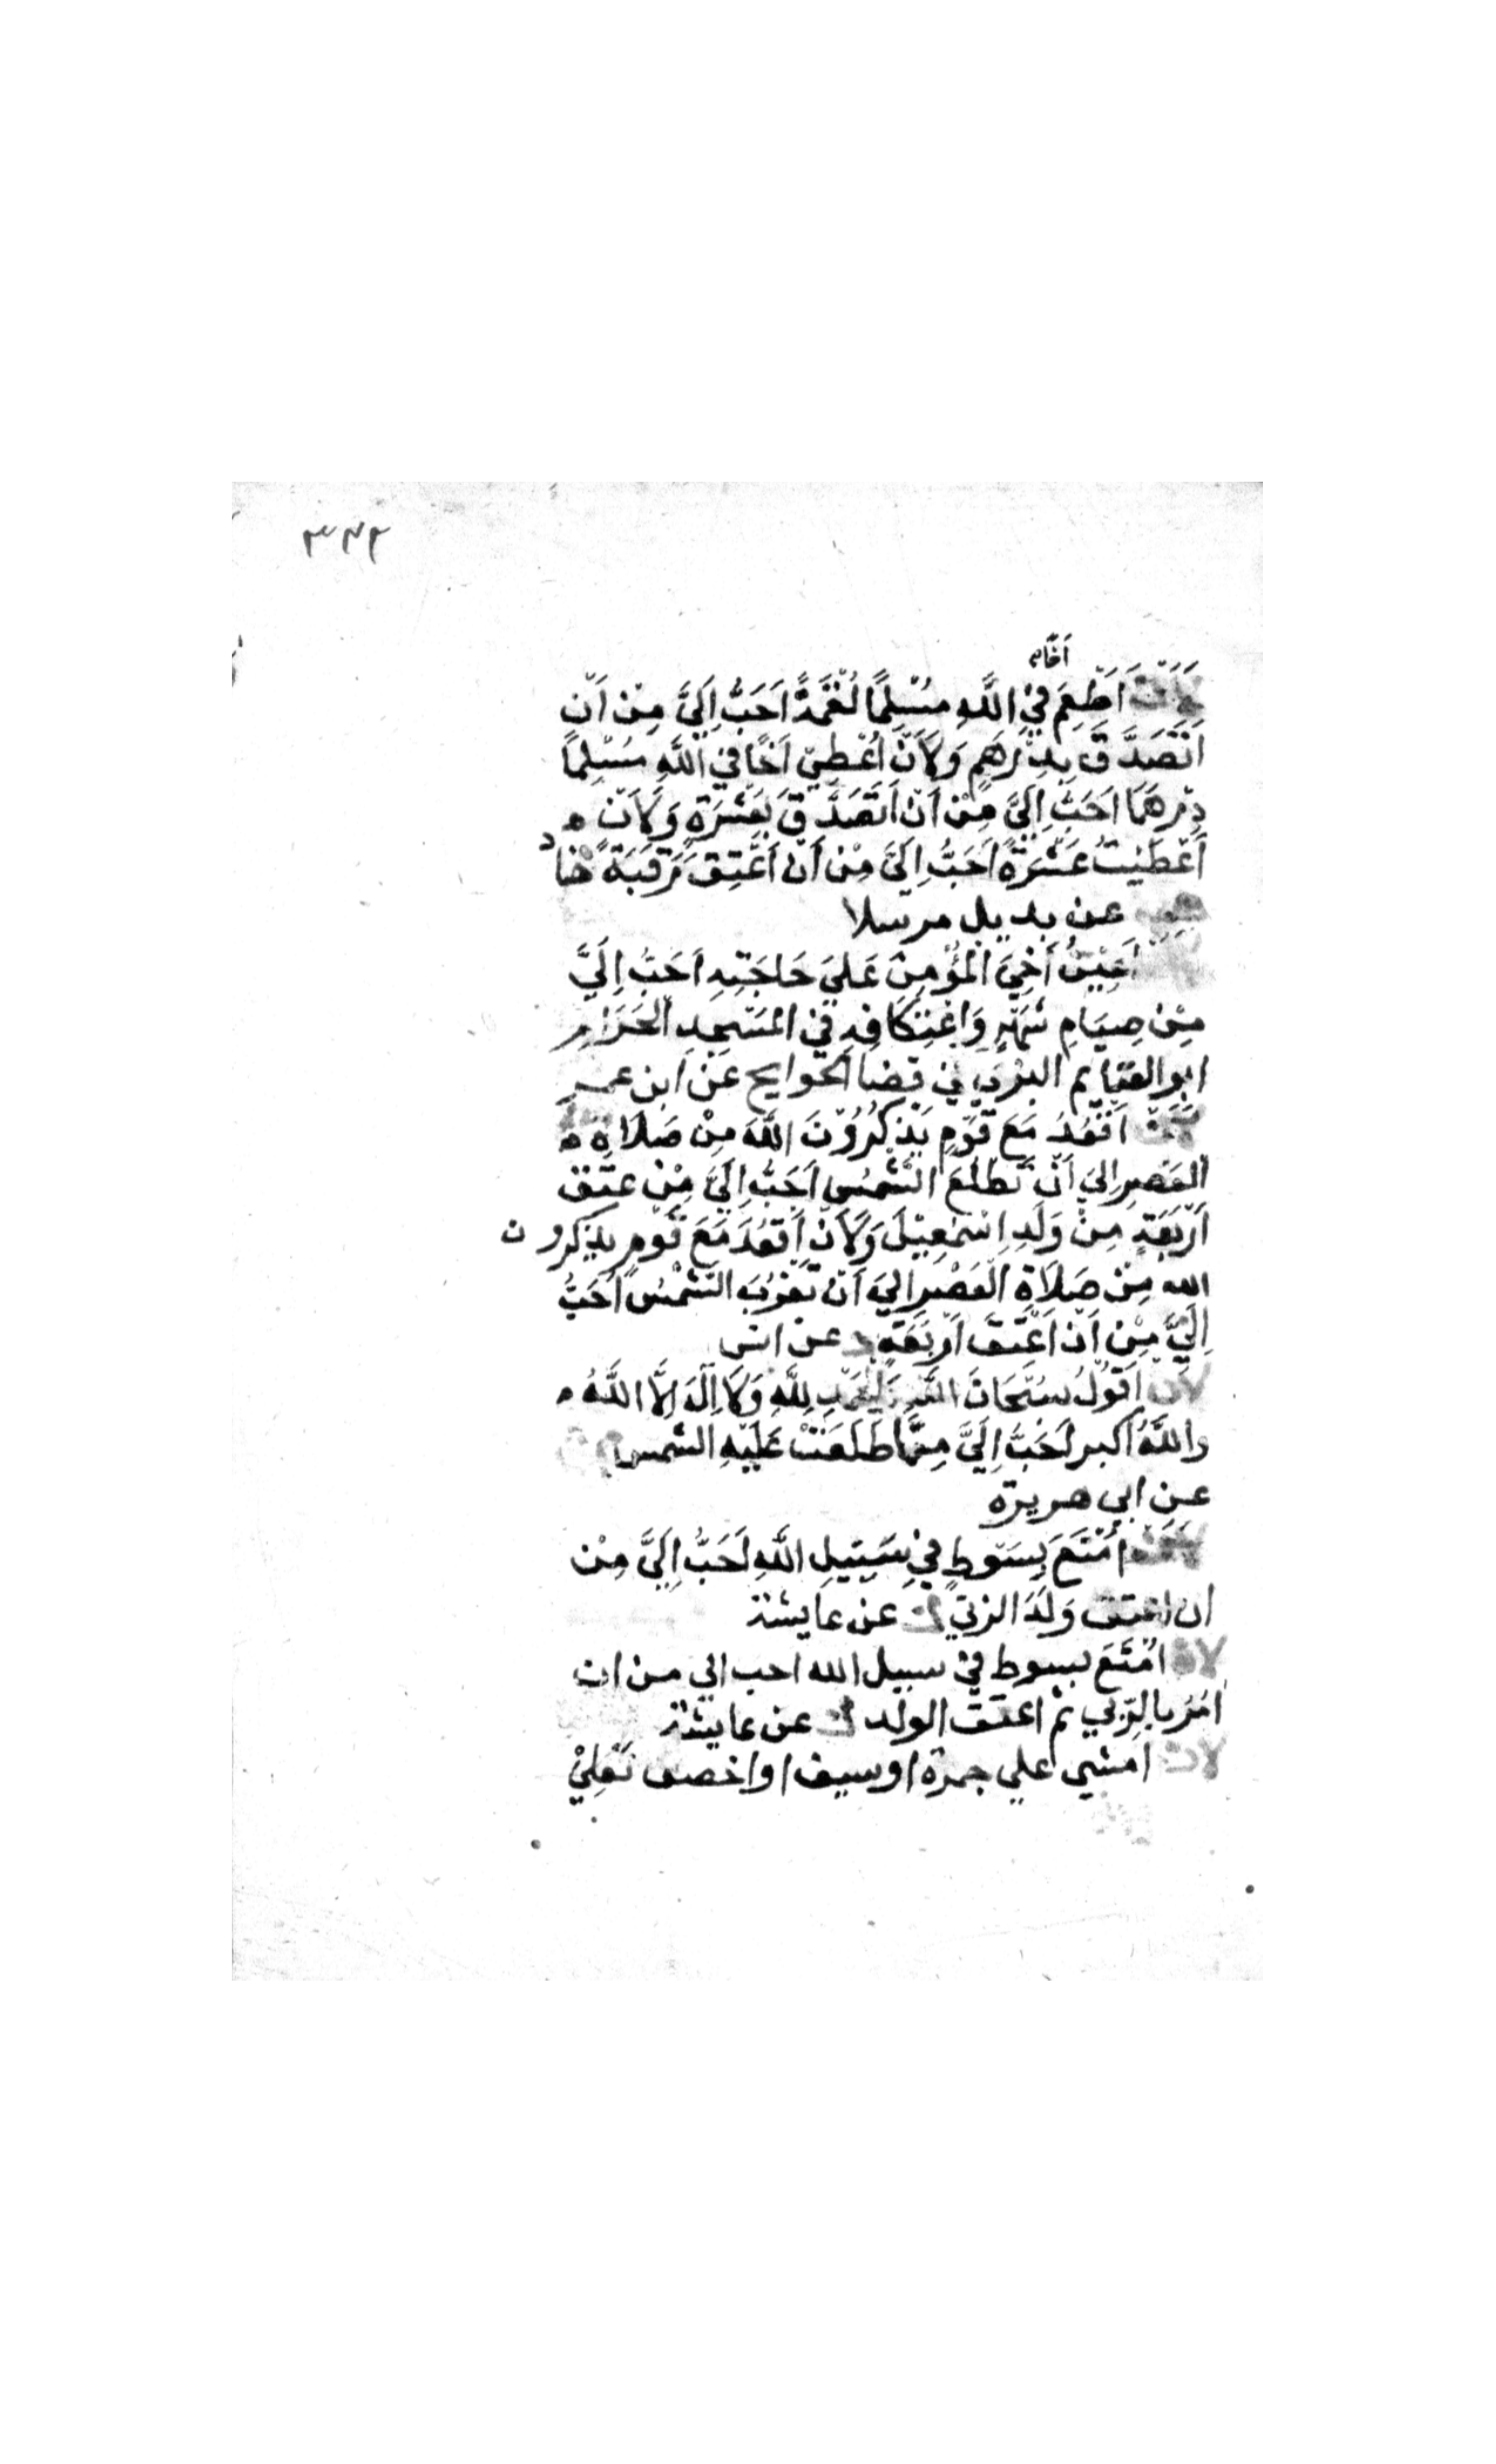 ٣٤٢
أخًا
لَأَنْ أُطْعِمَ فِي اللَّهِ مُسْلِمًا لُقْمَةً أَحَبُّ إِلَيَّ مِنْ أَنْ
أَتَصَدَّقَ بِدِرْهَمٍ وَلَأَنْ أُعْطِيَ أَخًا فِي اللَّهِ مُسْلِمًا
دِرْهَمًا أَحَبُّ إِلَيَّ مِنْ أَنْ أَتَصَدَّقَ بِعَشَرَةٍ وَلَأَنْ
أَعْطَيْتُ عَشَرَةً أَحَبُّ إِلَيَّ مِنْ أَنْ أُعْتِقَ رَقَبَةً هناد
عن بديل مرسلا
أُعِيْنُ أَخِيَ الْمُؤْمِنَ عَلَى حَاجَتِهِ أَحَبُّ إِلَيَّ
مِنْ صِيَامِ شَهْرٍ وَاعْتِكَافِهِ فِي الْمَسْجِدِ الْحَرَامِ
ابو الغنايم النرسي في قضا الحوايج عن ابن عمر
لَأَنْ أَقْعُدَ مَعَ قَوْمٍ يَذْكُرُوْنَ اللَّهَ مِنْ صَلَاةِ
الْعَصْرِ إِلَى أَنْ تَطْلُعَ الشَّمْسُ أَحَبُّ إِلَيَّ مِنْ عتق
أَرْبَعَةٍ مِنْ وَلَدِ إِسْمَعِيْلَ وَلَأَنْ أَقْعُدَ مَعَ قَوْمٍ يذكرون
الله مِنْ صَلَاةِ الْعَصْرِ إِلَى أَنْ تَغْرُبَ الشَّمْسُ أَحَبُّ
إِلَيَّ مِنْ أَنْ أَعْتِقَ أَرْبَعَةً د عن انس
لأن أَقُوْلَ سُبْحَانَ اللَّهِ وَالْحَمْدُ لِلَّهِ وَلَا إِلَهَ إِلَّا اللَّهُ
واللَّهُ أكبر أَحَبُّ إِلَيَّ مِمَّا طَلَعَتْ عَلَيْهِ الشمس
عن ابي هريرة
لَأَنْ أُمَتِّعَ بِسَوْطٍ فِي سَبِيْلِ اللَّهِ أَحَبُّ إِلَيَّ مِنْ
ان اعتق وَلَدَ الزني ك عن عايشة
لان امتع بسوط في سبيل الله احب الي من ان
امر بالزني ثم اعتق الولد ك عن عايشة
لان امشي علي جمرة او سيف او اخصف نَعْلِيْ